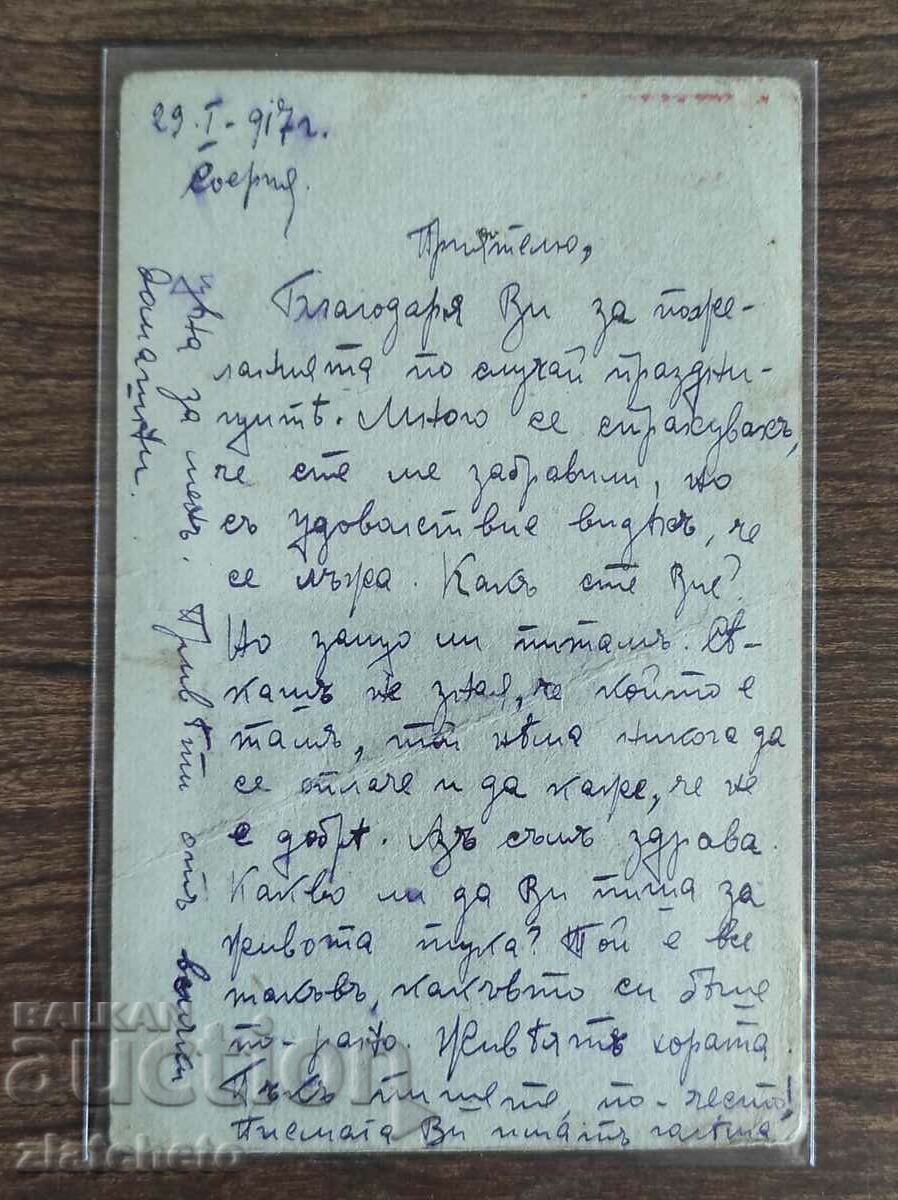 29.I-917г.
София.
Приятелю,
Благодаря Ви за поже-
ланията по случай праздни-
цитѣ. Много се страхувахъ,
че сте ме забравили, но
съ удоволствие видѣхъ, че
се лъжа. Какъ сте Вие?
Но защо ли питамъ. Са-
камъ не зная, че който е
тамъ, той нѣма никога да
се оплаче и да каже, че не
е добрѣ. Азъ съмъ здрава.
Какво ли да Ви пиша за
живота тука? Той е все
такъвъ, какъвто си бѣше
по-рано. Живѣятъ хората.
Пъкъ пишете, по-често!
Писмата Ви иматъ голѣма
цѣна за менъ. Привѣти отъ всички
домашни.
BALKAN
auction
zlatcheto